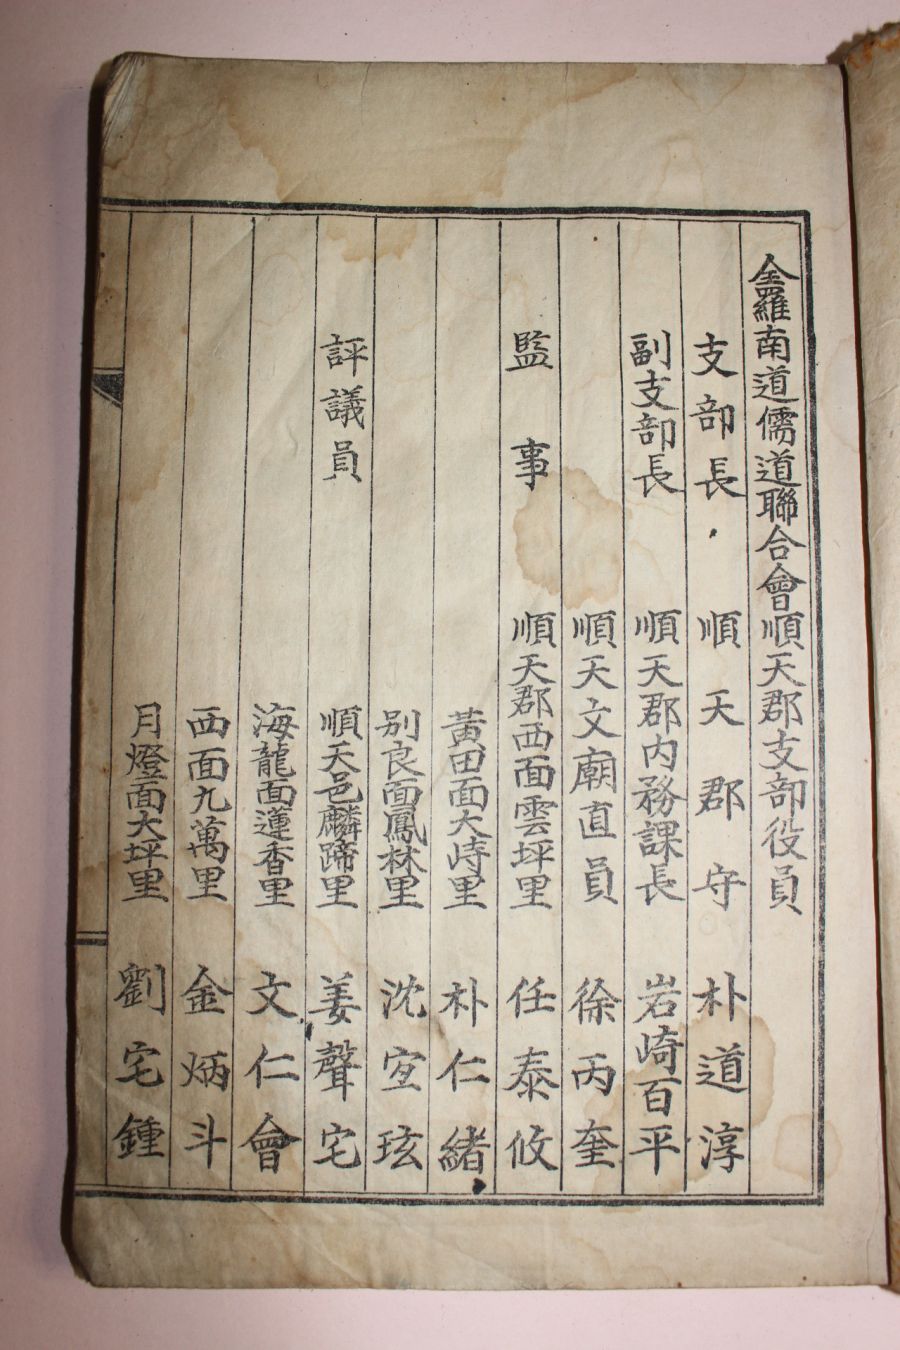 全羅南道儒道聯合會順天郡支部役員
支部長 順天郡守 朴道淳
副支部長 順天郡內務課長 岩崎百平
順天文廟直員 徐丙奎
監事 順天郡西面雲坪里 任泰攸
黃田面大峙里 朴仁緖
別良面鳳林里 沈宜玹
評議員 順天邑麟蹄里 姜聲宅
海龍面蓮香里 文仁會
西面九萬里 金炳斗
月燈面大坪里 劉宅鍾